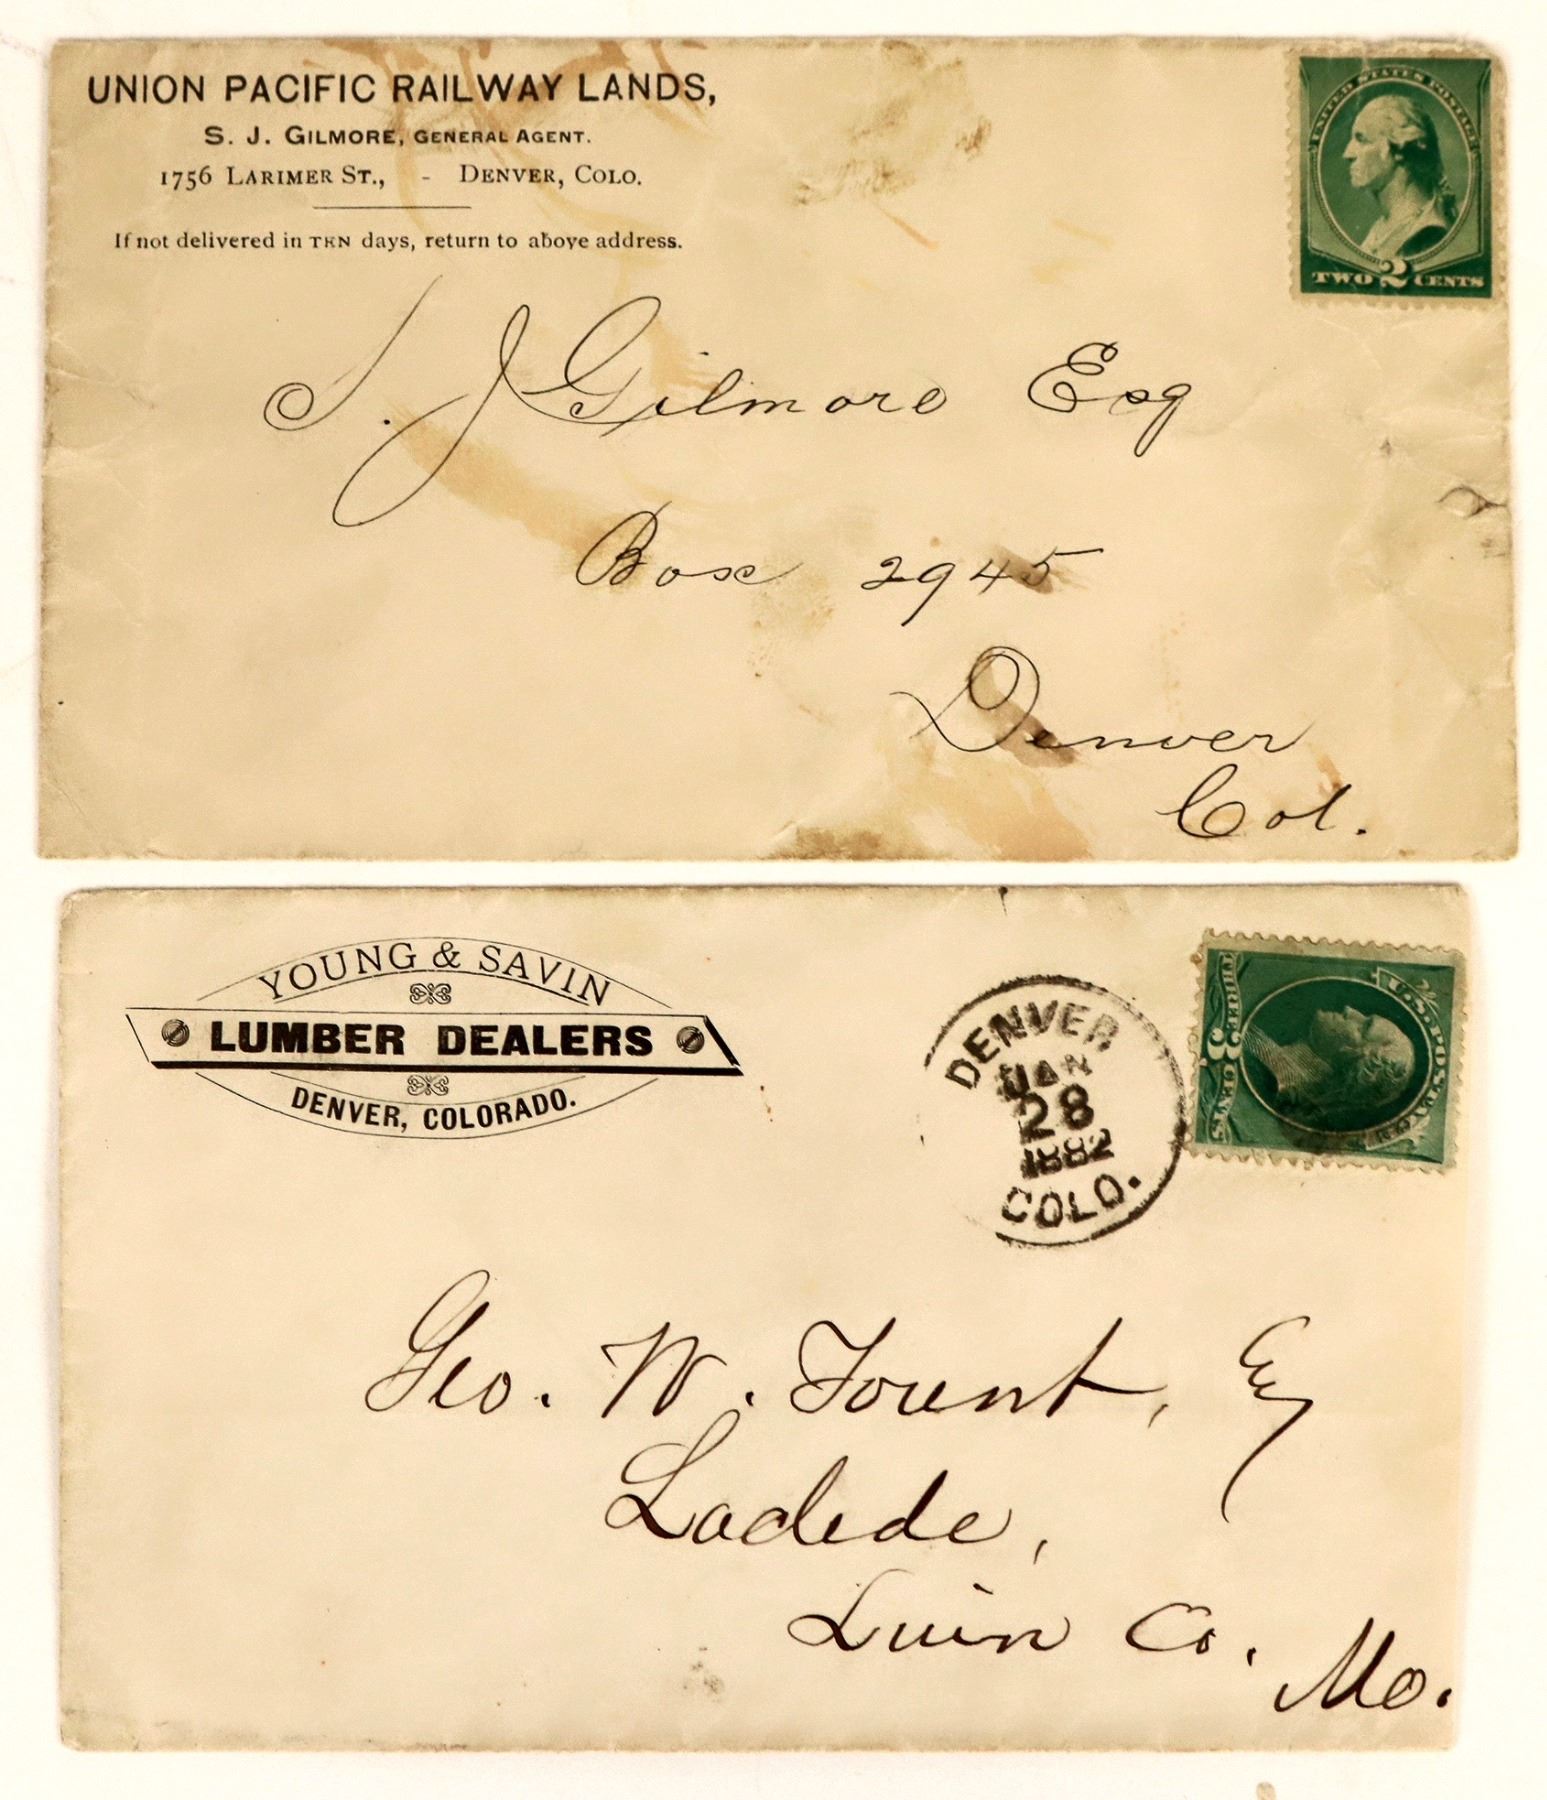 UNION PACIFIC RAILWAY LANDS,
S. J. GILMORE, GENERAL AGENT.
1756 LARIMER ST., - DENVER, COLO.
If not delivered in TEN days, return to above address.
UNITED STATES POSTAGE
TWO 2 CENTS
S. J Gilmore Esq
Box 2945
Denver
Col.
YOUNG & SAVIN
LUMBER DEALERS
DENVER, COLORADO.
DENVER
JAN
28
1882
COLO.
U.S. POSTAGE
THREE 3 CENTS
Geo. W. Fount, Esq
Laclede,
Linn Co.
Mo.